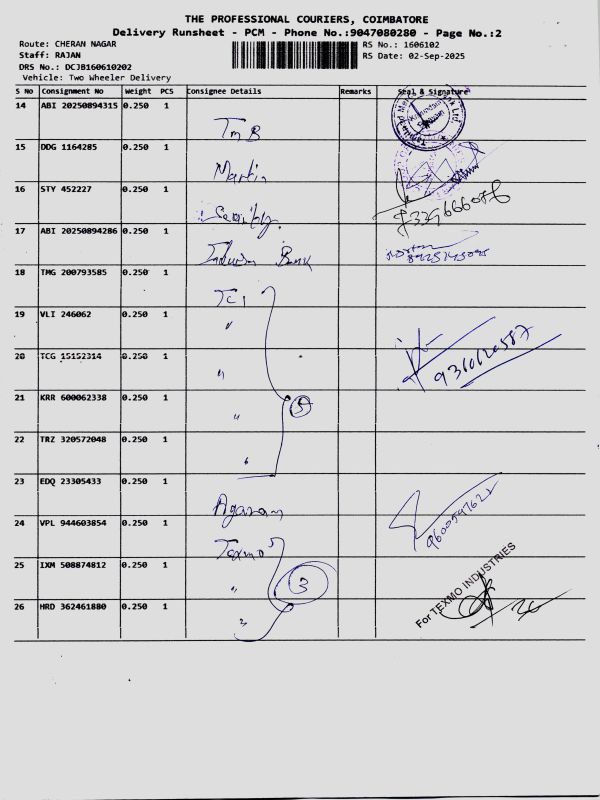 THE PROFESSIONAL COURIERS, COIMBATORE
Delivery Runsheet - PCM - Phone No.:9047080280 - Page No.:2
Route: CHERAN NAGAR
RS No.: 1606102
Staff: RAJAN
RS Date: 02-Sep-2025
DRS No.: DCJB160610202
Vehicle: Two Wheeler Delivery
S No Consignment No Weight PCS Consignee Details Remarks Seal & Signature
14 ABI 20250894315 0.250 1
TMB
15 DDG 1164285 0.250 1
Martin
16 STY 452227 0.250 1
17 ABI 20250894286 0.250 1
Bank
18 TMG 200793585 0.250 1
TCI
19 VLI 246062 0.250 1
"
20 TCG 15152314 0.250 1
"
21 KRR 600062338 0.250 1
" 5
22 TRZ 320572048 0.250 1
23 EDQ 23305433 0.250 1
Agaram
24 VPL 944603854 0.250 1
Texmo
25 IXM 508874812 0.250 1
" 3
For TEXMO INDUSTRIES
26 HRD 362461880 0.250 1
"